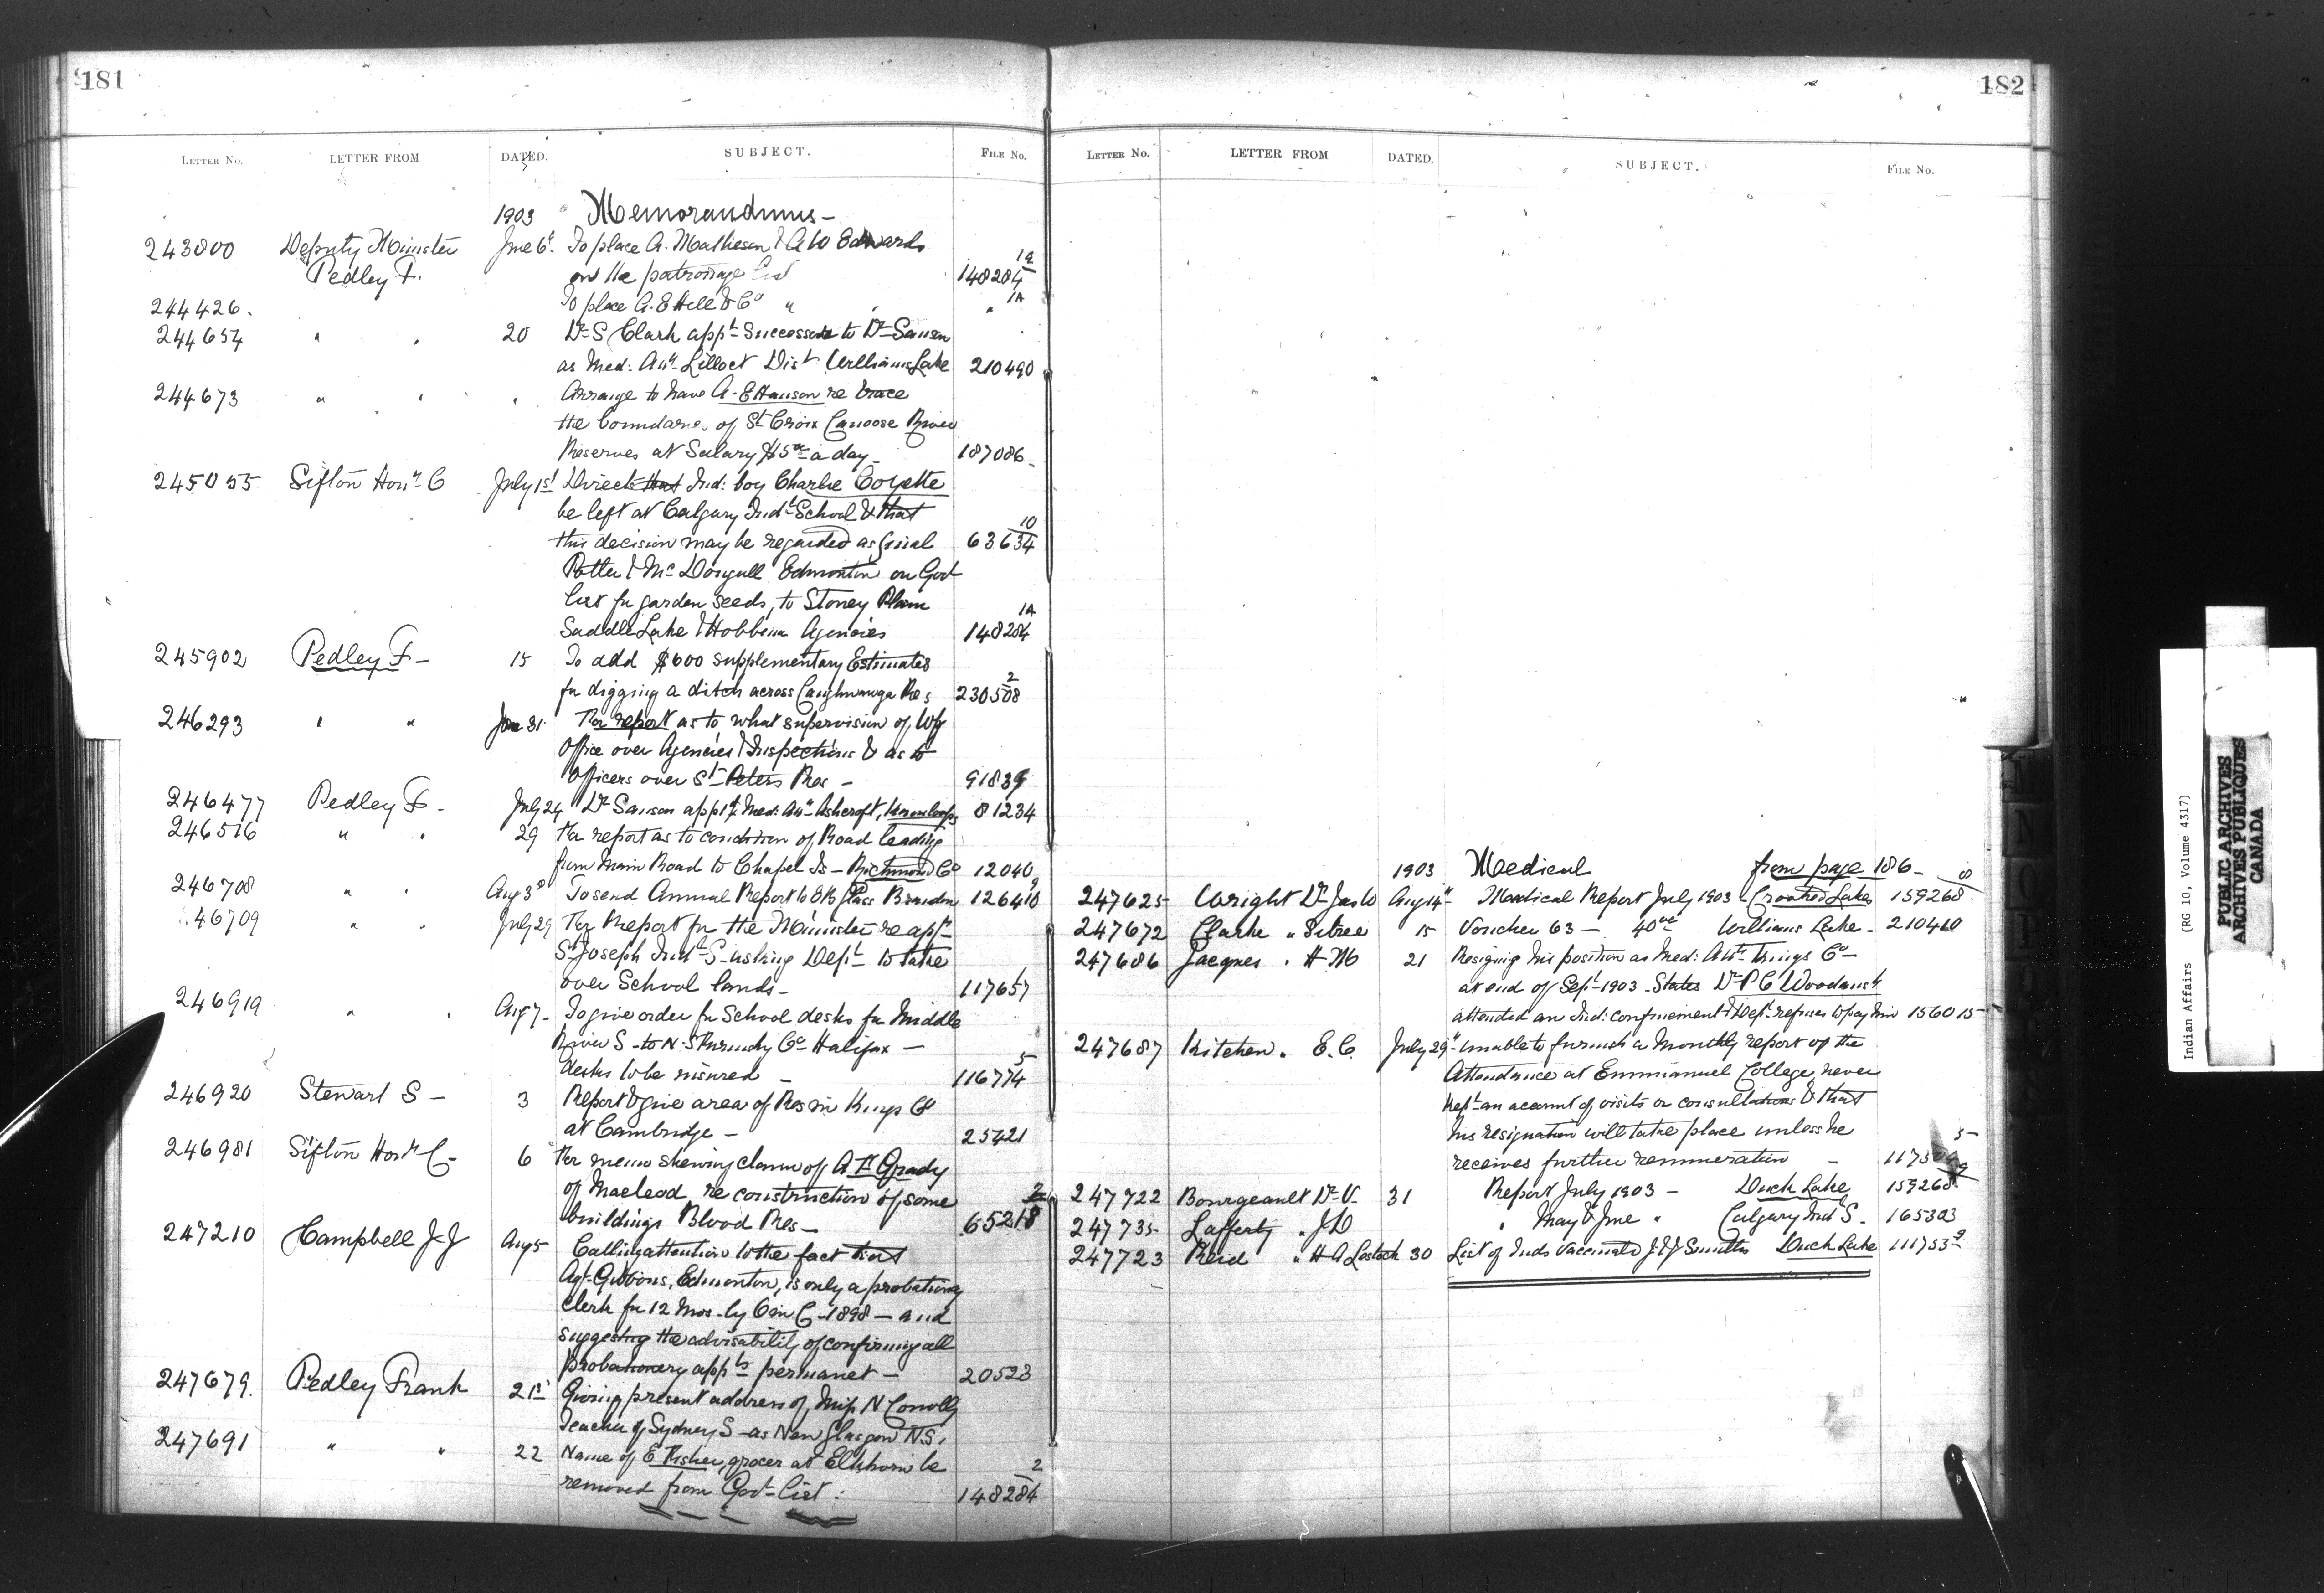 181
LETTER No. LETTER FROM DATED. SUBJECT. FILE No.
1903 Memorandums -
243800 Deputy Minister June 6th To place A. Matheson & A W Edwards
Pedley F. on the patronage list 148284 1a
244426. To place A. E Hill & Co " " " 1A
244654 " " 20 Dr S Clark appt Successor to Dr Sanson
as Med: Att Lillooet Dist Williams Lake 210490
244673 " " " Arrange to have A. E Hanson re trace
the boundaries of St Croix Canoose River
Reserves at Salary $5.00 a day - 187086
245055 Sifton Honr C July 1st Directs that Ind: boy Charlie Coyette
be left at Calgary Indl School & that
this decision may be regarded as final 63634 10
Potter & McDougall Edmonton on Govt
list for garden seeds, to Stoney Plain
Saddle Lake & Hobbema Agencies 148284 1A
245902 Pedley F - 15 To add $600 supplementary Estimates
for digging a ditch across Caughnawaga Res 230508 2
246293 " " 31 For report as to what supervision of Wpg
Office over Agencies & Inspections & as to
Officers over St Peters Res - 91839
246477 Pedley F - July 24 Dr Sanson appt Med: Att Ashcroft, Kamloops 81234
246516 " " 29 For report as to condition of Road leading
from Main Road to Chapel Is - Richmond Co 12040
246708 " " Aug 3d To send Annual Report to & B Glass Brandon 126410
46709 " " July 29 For Report for the Minister re appn
St Joseph Indl S - asking Dept to take
over School lands - 117657
246919 " " Aug 7 - To give order for School desks for Middle
River S - to N. S Furnishg Co Halifax -
desks to be insured - 116774 5
246920 Stewart S - 3 Report & give area of Res in Kings Co
at Cambridge - 25421
246981 Sifton Honr C - 6 For memo shewing claim of A F Grady
of Macleod re construction of some
buildings Blood Res - 65218 2
247210 Campbell J J Aug 5 Calling attention to the fact that
Agt Gibbons, Edmonton, is only a probationy
Clerk for 12 mos - by O in C - 1898 - and
suggesting the advisability of confirming all
probationery appts permanet - 20523
247679. Pedley Frank 21st Giving present address of Miss N Conolly
Teacher of Sydney S - as New Glasgow N.S.
247691 " " 22 Name of E Fisher, grocer at Elkhorn be
removed from Govt list : 148284 2
182
LETTER No. LETTER FROM DATED. SUBJECT. FILE No.
1903 Medical from page 186 -
247625 Wright Dr Jas W Aug 14th Medical Report July 1903 - Crooked Lakes 159268
247672 Clarke " Sibree 15 Voucher 63 - 40.00 Williams Lake - 210410
247686 Jacques " H M 21 Resigning his position as Med: Att Kings Co -
at end of Sept 1903 - States Dr P C Woodworth
attended an Ind: confinement & Dept refuses to pay him 156015
247687 Kitchen " E. C. July 29th unable to furnish a Monthly report of the
Attendance at Emmanuel College, never
kept an account of visits or consultations & that
his resignation will take place unless he
receives further remuneration -
247722 Bourgeault Dr V. 31 Report July 1903 - Duck Lake 159268
247735 Lafferty " J D " May & June " Calgary Indl S. 165303
247723 Reid " H A Lestock 30 List of Inds Vaccinated J & J Smiths Duck Lake 111753 2
Indian Affairs (RG 10, Volume 4317)
PUBLIC ARCHIVES
ARCHIVES PUBLIQUES
CANADA
M
N
O
P